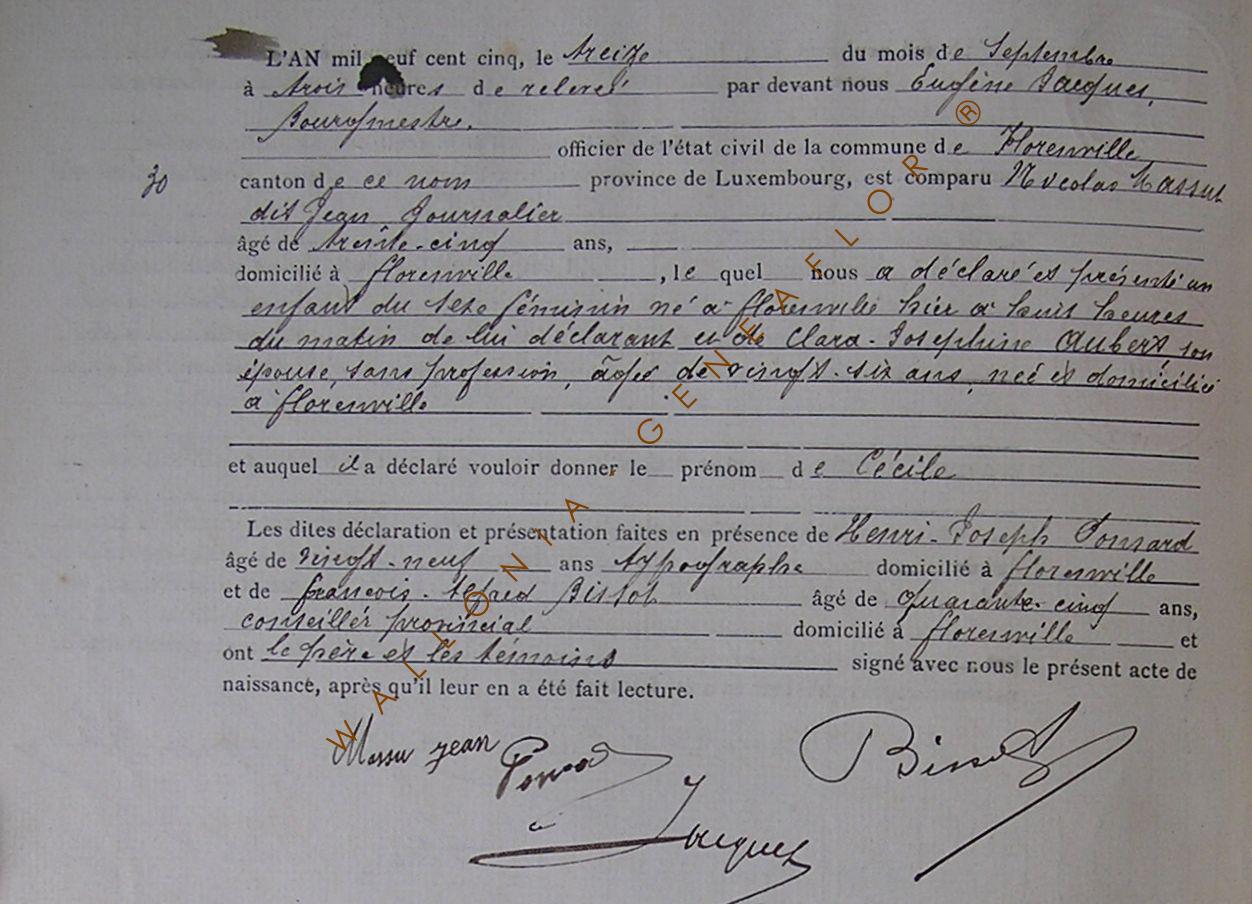 L'AN mil neuf cent cinq, le treize du mois de Septembre
à trois heures de relevé par devant nous Eugène Jacques,
Bourgmestre.
officier de l'état civil de la commune de Florenville
30 canton de ce nom province de Luxembourg, est comparu Nicolas Massut
dit Jean Journalier
âgé de trente-cinq ans,
domicilié à florenville, le quel nous a déclaré et présenté un
enfant du sexe féminin né à florenville hier à huit heures
du matin de lui déclarant et de Clara-Josephine Aubert, son
épouse, sans profession, âgée de vingt-six ans, née et domiciliée
à florenville
et auquel il a déclaré vouloir donner le prénom de Cécile
Les dites déclaration et présentation faites en présence de Henri-Joseph Ponsard
âgé de vingt-neuf ans typographe domicilié à florenville
et de françois-alfred Bissot âgé de quarante-cinq ans,
conseiller provincial domicilié à florenville et
ont le père et les témoins signé avec nous le présent acte de
naissance, après qu'il leur en a été fait lecture.
Massu jean Bissot
Jacques
WALLONIA GENEAFLOR ®